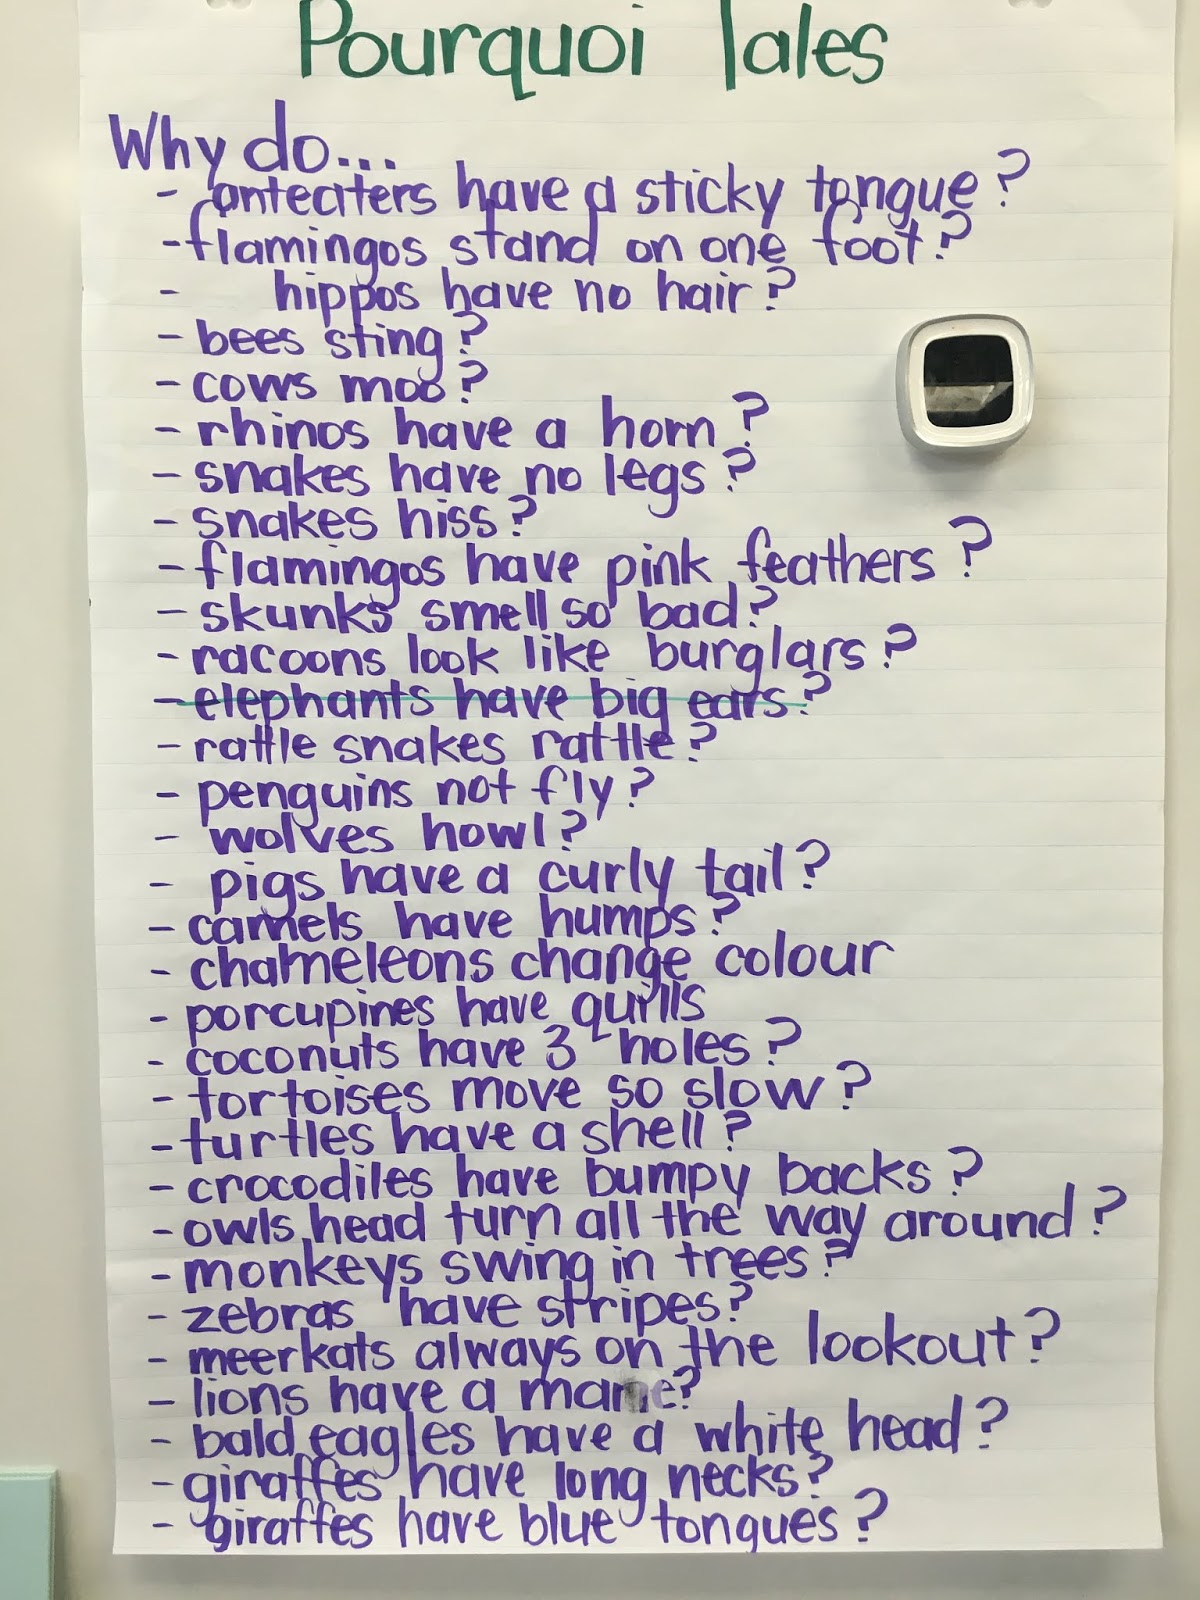 Pourquoi Tales
Why do...
- anteaters have a sticky tongue?
- flamingos stand on one foot?
- hippos have no hair?
- bees sting?
- cows moo?
- rhinos have a horn?
- snakes have no legs?
- snakes hiss?
- flamingos have pink feathers?
- skunks smell so bad?
- racoons look like burglars?
- elephants have big ears?
- rattle snakes rattle?
- penguins not fly?
- wolves howl?
- pigs have a curly tail?
- camels have humps?
- chameleons change colour
- porcupines have quills
- coconuts have 3 holes?
- tortoises move so slow?
- turtles have a shell?
- crocodiles have bumpy backs?
- owls head turn all the way around?
- monkeys swing in trees?
- zebras have stripes?
- meerkats always on the lookout?
- lions have a mane?
- bald eagles have a white head?
- giraffes have long necks?
- giraffes have blue tongues?